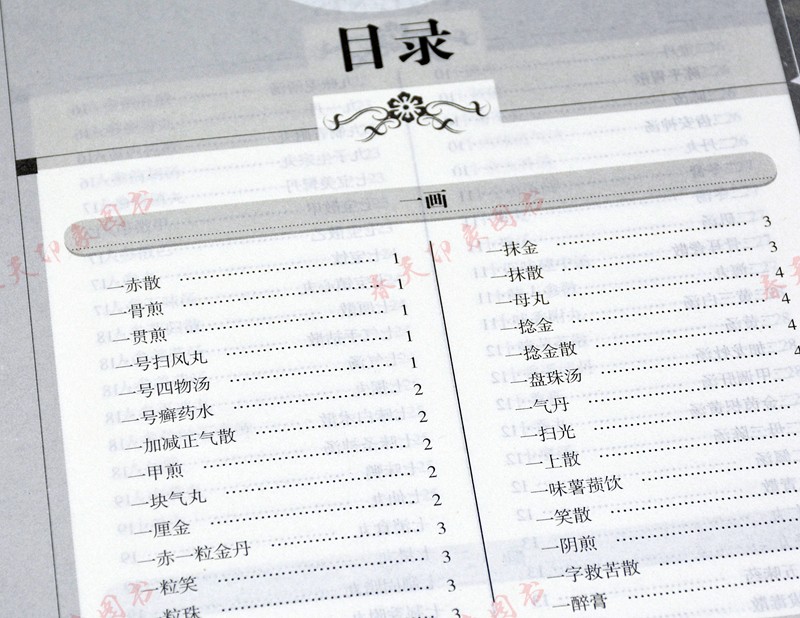 目录
一画
一赤散 1
一骨煎 1
一贯煎 1
一号扫风丸 1
一号四物汤 1
一号癣药水 2
一加减正气散 2
一甲煎 2
一块气丸 2
一厘金 2
一赤一粒金丹 3
一粒笑 3
一粒珠 3
一抹金 3
一抹散 3
一母丸 4
一捻金 4
一捻金散 4
一盘珠汤 4
一气丹
一扫光
一上散
一味薯蓣饮
一笑散
一阴煎
一字救苦散
一醉膏
春天印象图书